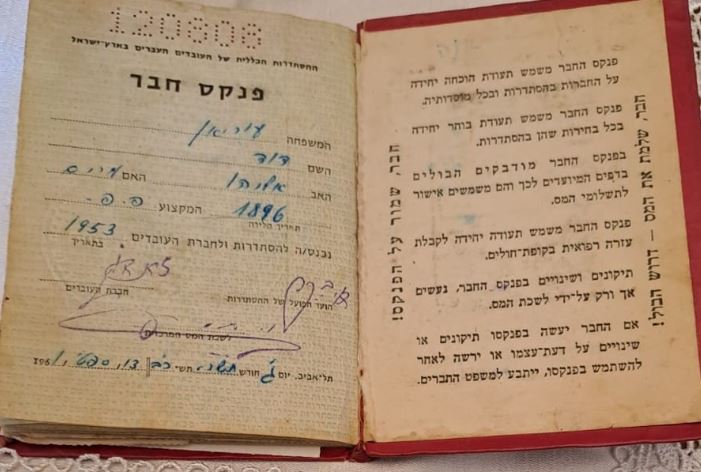 120808
ההסתדרות הכללית של העובדים העברים בארץ-ישראל
פנקס חבר
המשפחה
השם דוד
האב אליהו האם מרים
תאריך הלידה 1896 המקצוע פ.פ.
נכנס/ה להסתדרות ולחברת העובדים בתאריך 1953
הועד הפועל של ההסתדרות חברת העובדים
לשכת המס המרכזית
תל-אביב, יום ג' חודש תשרי תש" כב 12, ספט', 1961
פנקס החבר משמש תעודת הוכחה יחידה
על החברות בהסתדרות ובכל מוסדותיה.
פנקס החבר משמש תעודת בוחר יחידה
בכל בחירות שהן בהסתדרות.
בפנקס החבר מודבקים הבולים
בדפים המיועדים לכך והם משמשים אישור
לתשלומי המס.
פנקס החבר משמש תעודה יחידה לקבלת
עזרה רפואית בקופת-חולים.
תיקונים ושינויים בפנקס החבר, נעשים
אך ורק על-ידי לשכת המס.
אם החבר יעשה בפנקסו תיקונים או
שינויים על דעת-עצמו או ירשה לאחר
להשתמש בפנקסו, ייתבע למשפט החברים.
חבר, שמור על הפנקס!
חבר, שלמת את המס – דרוש הבול!